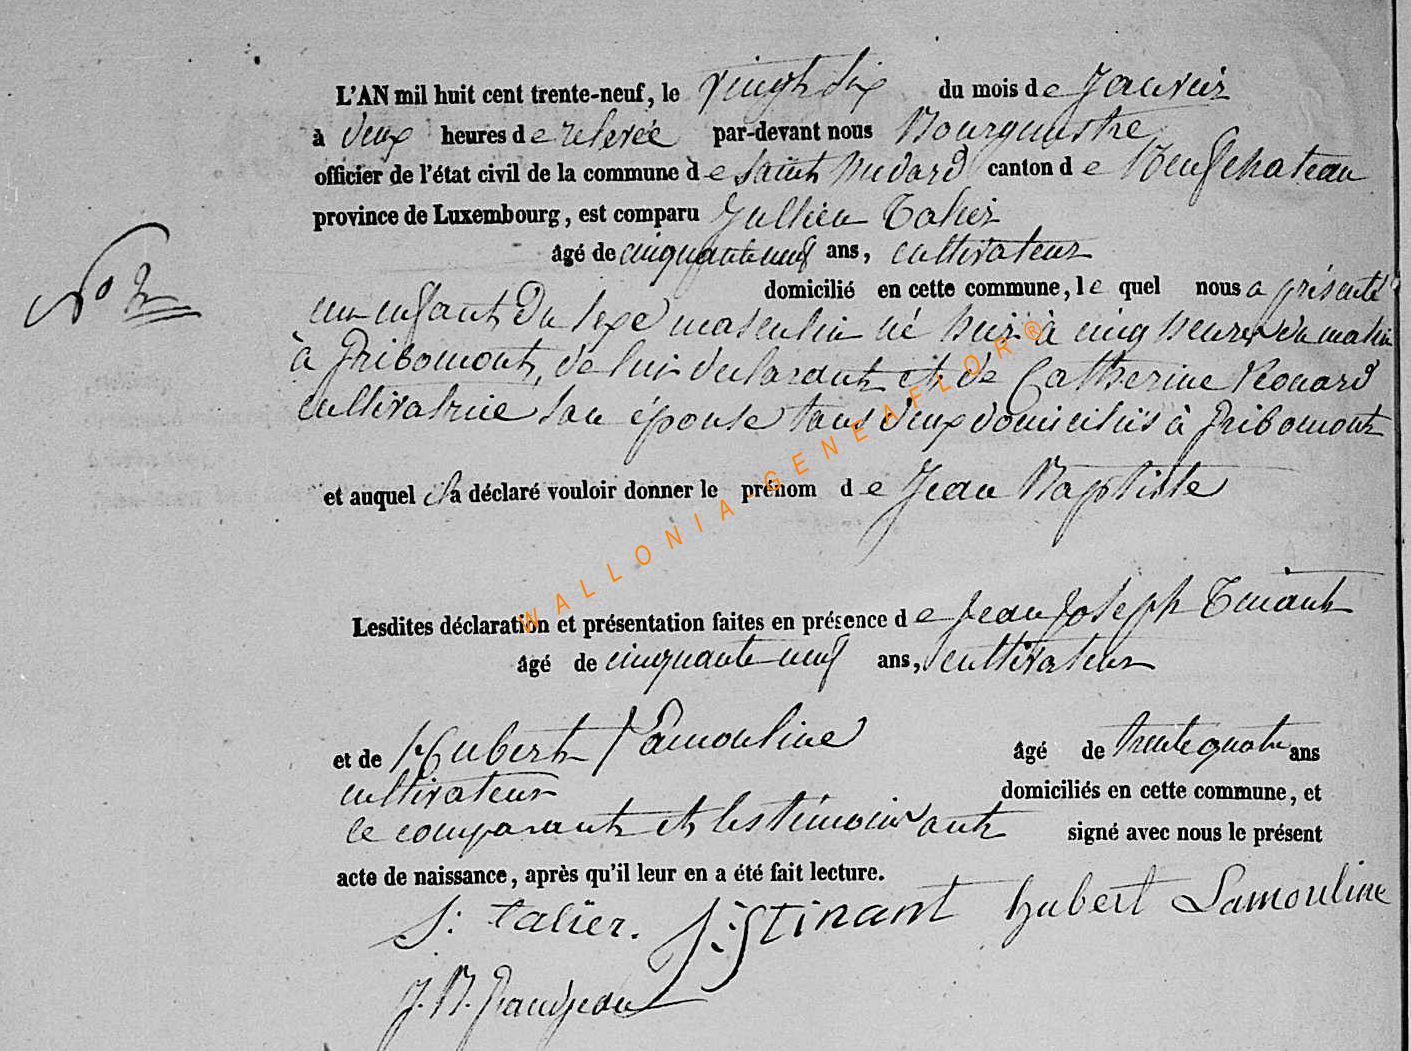 L'AN mil huit cent trente-neuf, le vingt six du mois de Janvier
à deux heures de relevée par-devant nous Bourguestre
officier de l'état civil de la commune de saint Médard canton de Neufchateau
province de Luxembourg, est comparu Jullien Talier
âgé de cinquante neuf ans, cultivateur
N° 2
domicilié en cette commune, le quel nous a présenté
un enfant du sexe masculin né hier à cinq heures du matin
à Gribomont, de lui déclarant et de Catherine Renard
cultivatrice son épouse tous deux domiciliés à Gribomont
et auquel il a déclaré vouloir donner le prénom de Jean Baptiste
Lesdites déclaration et présentation faites en présence de Jean Joseph Tinant
âgé de cinquante neuf ans, cultivateur
et de Hubert Lamouline âgé de trente quatre ans
cultivateur domiciliés en cette commune, et
le comparant et les témoins ont signé avec nous le présent
acte de naissance, après qu'il leur en a été fait lecture.
J: talier. J: J tinant hubert Lamouline
J. B.
WALLONIA-GENEAFLOR®